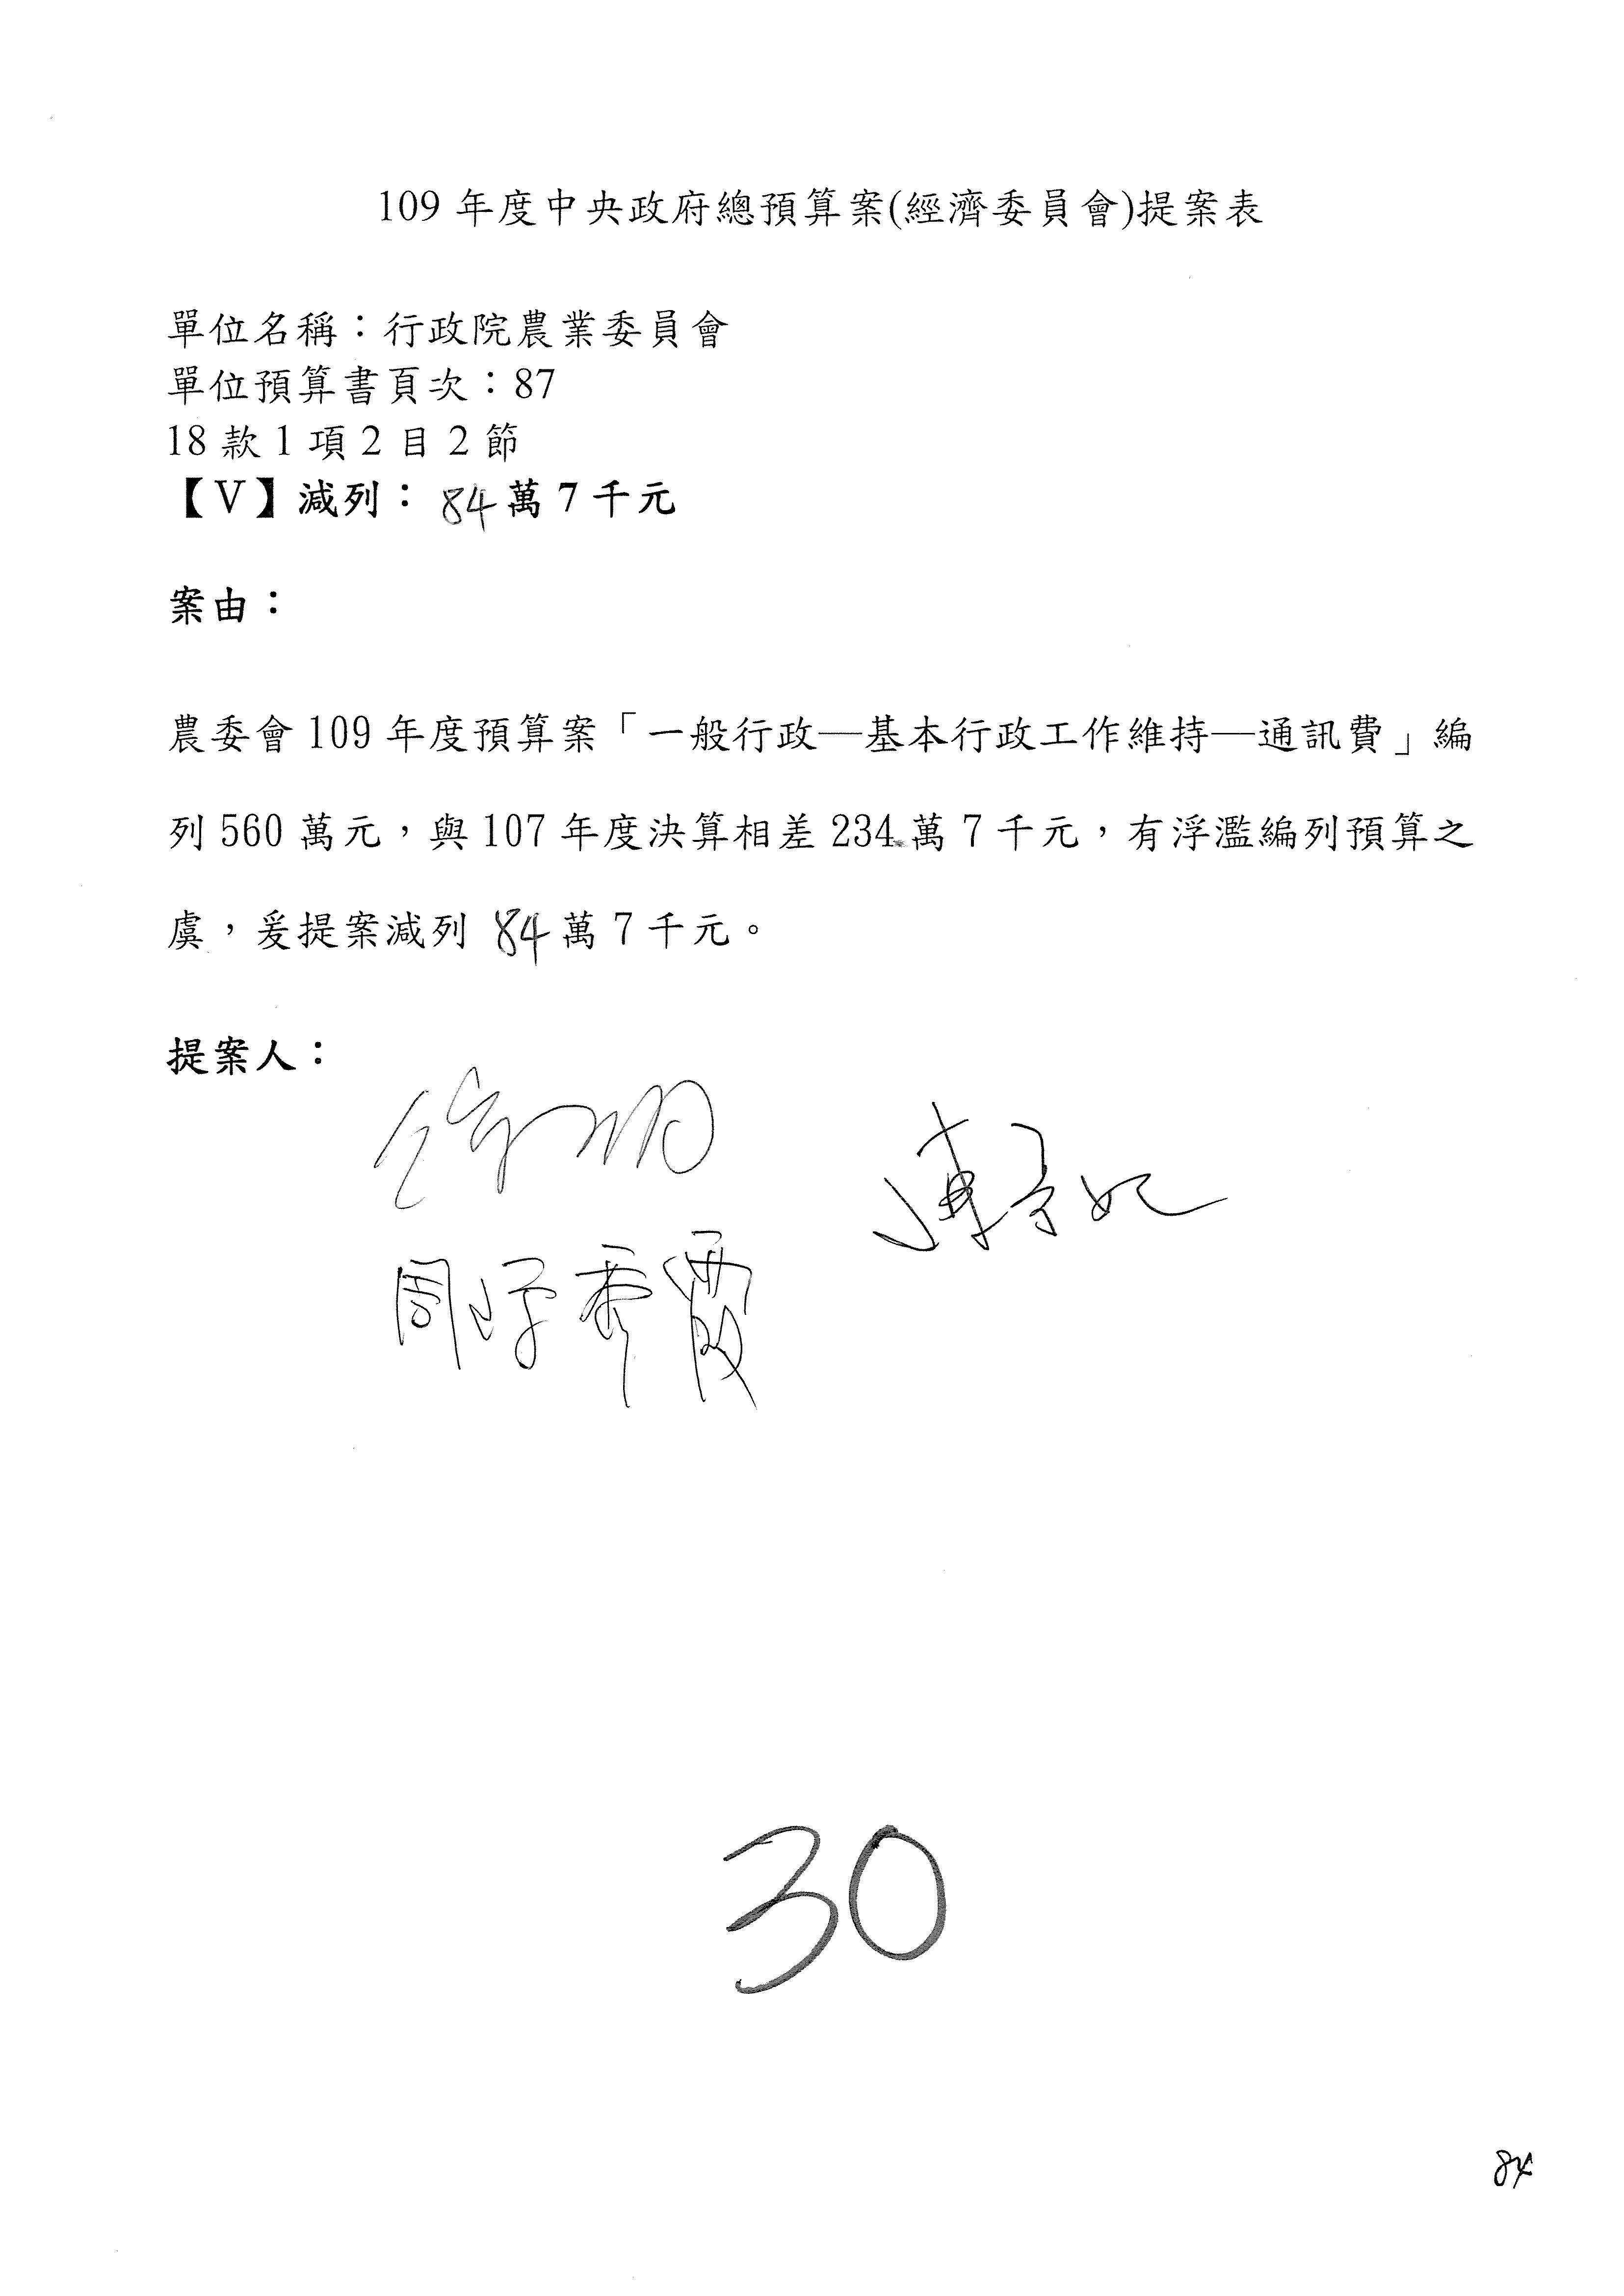 109 年度中央政府總預算案(經濟委員會)提案表
單位名稱：行政院農業委員會
單位預算書頁次：87
18 款 1 項 2 目 2 節
【V】減列： 84 萬 7 千元
案由：
農委會 109 年度預算案「一般行政—基本行政工作維持—通訊費」編
列 560 萬元，與 107 年度決算相差 234 萬 7 千元，有浮濫編列預算之
虞，爰提案減列 84 萬 7 千元。
提案人：
周陳秀霞
30
84